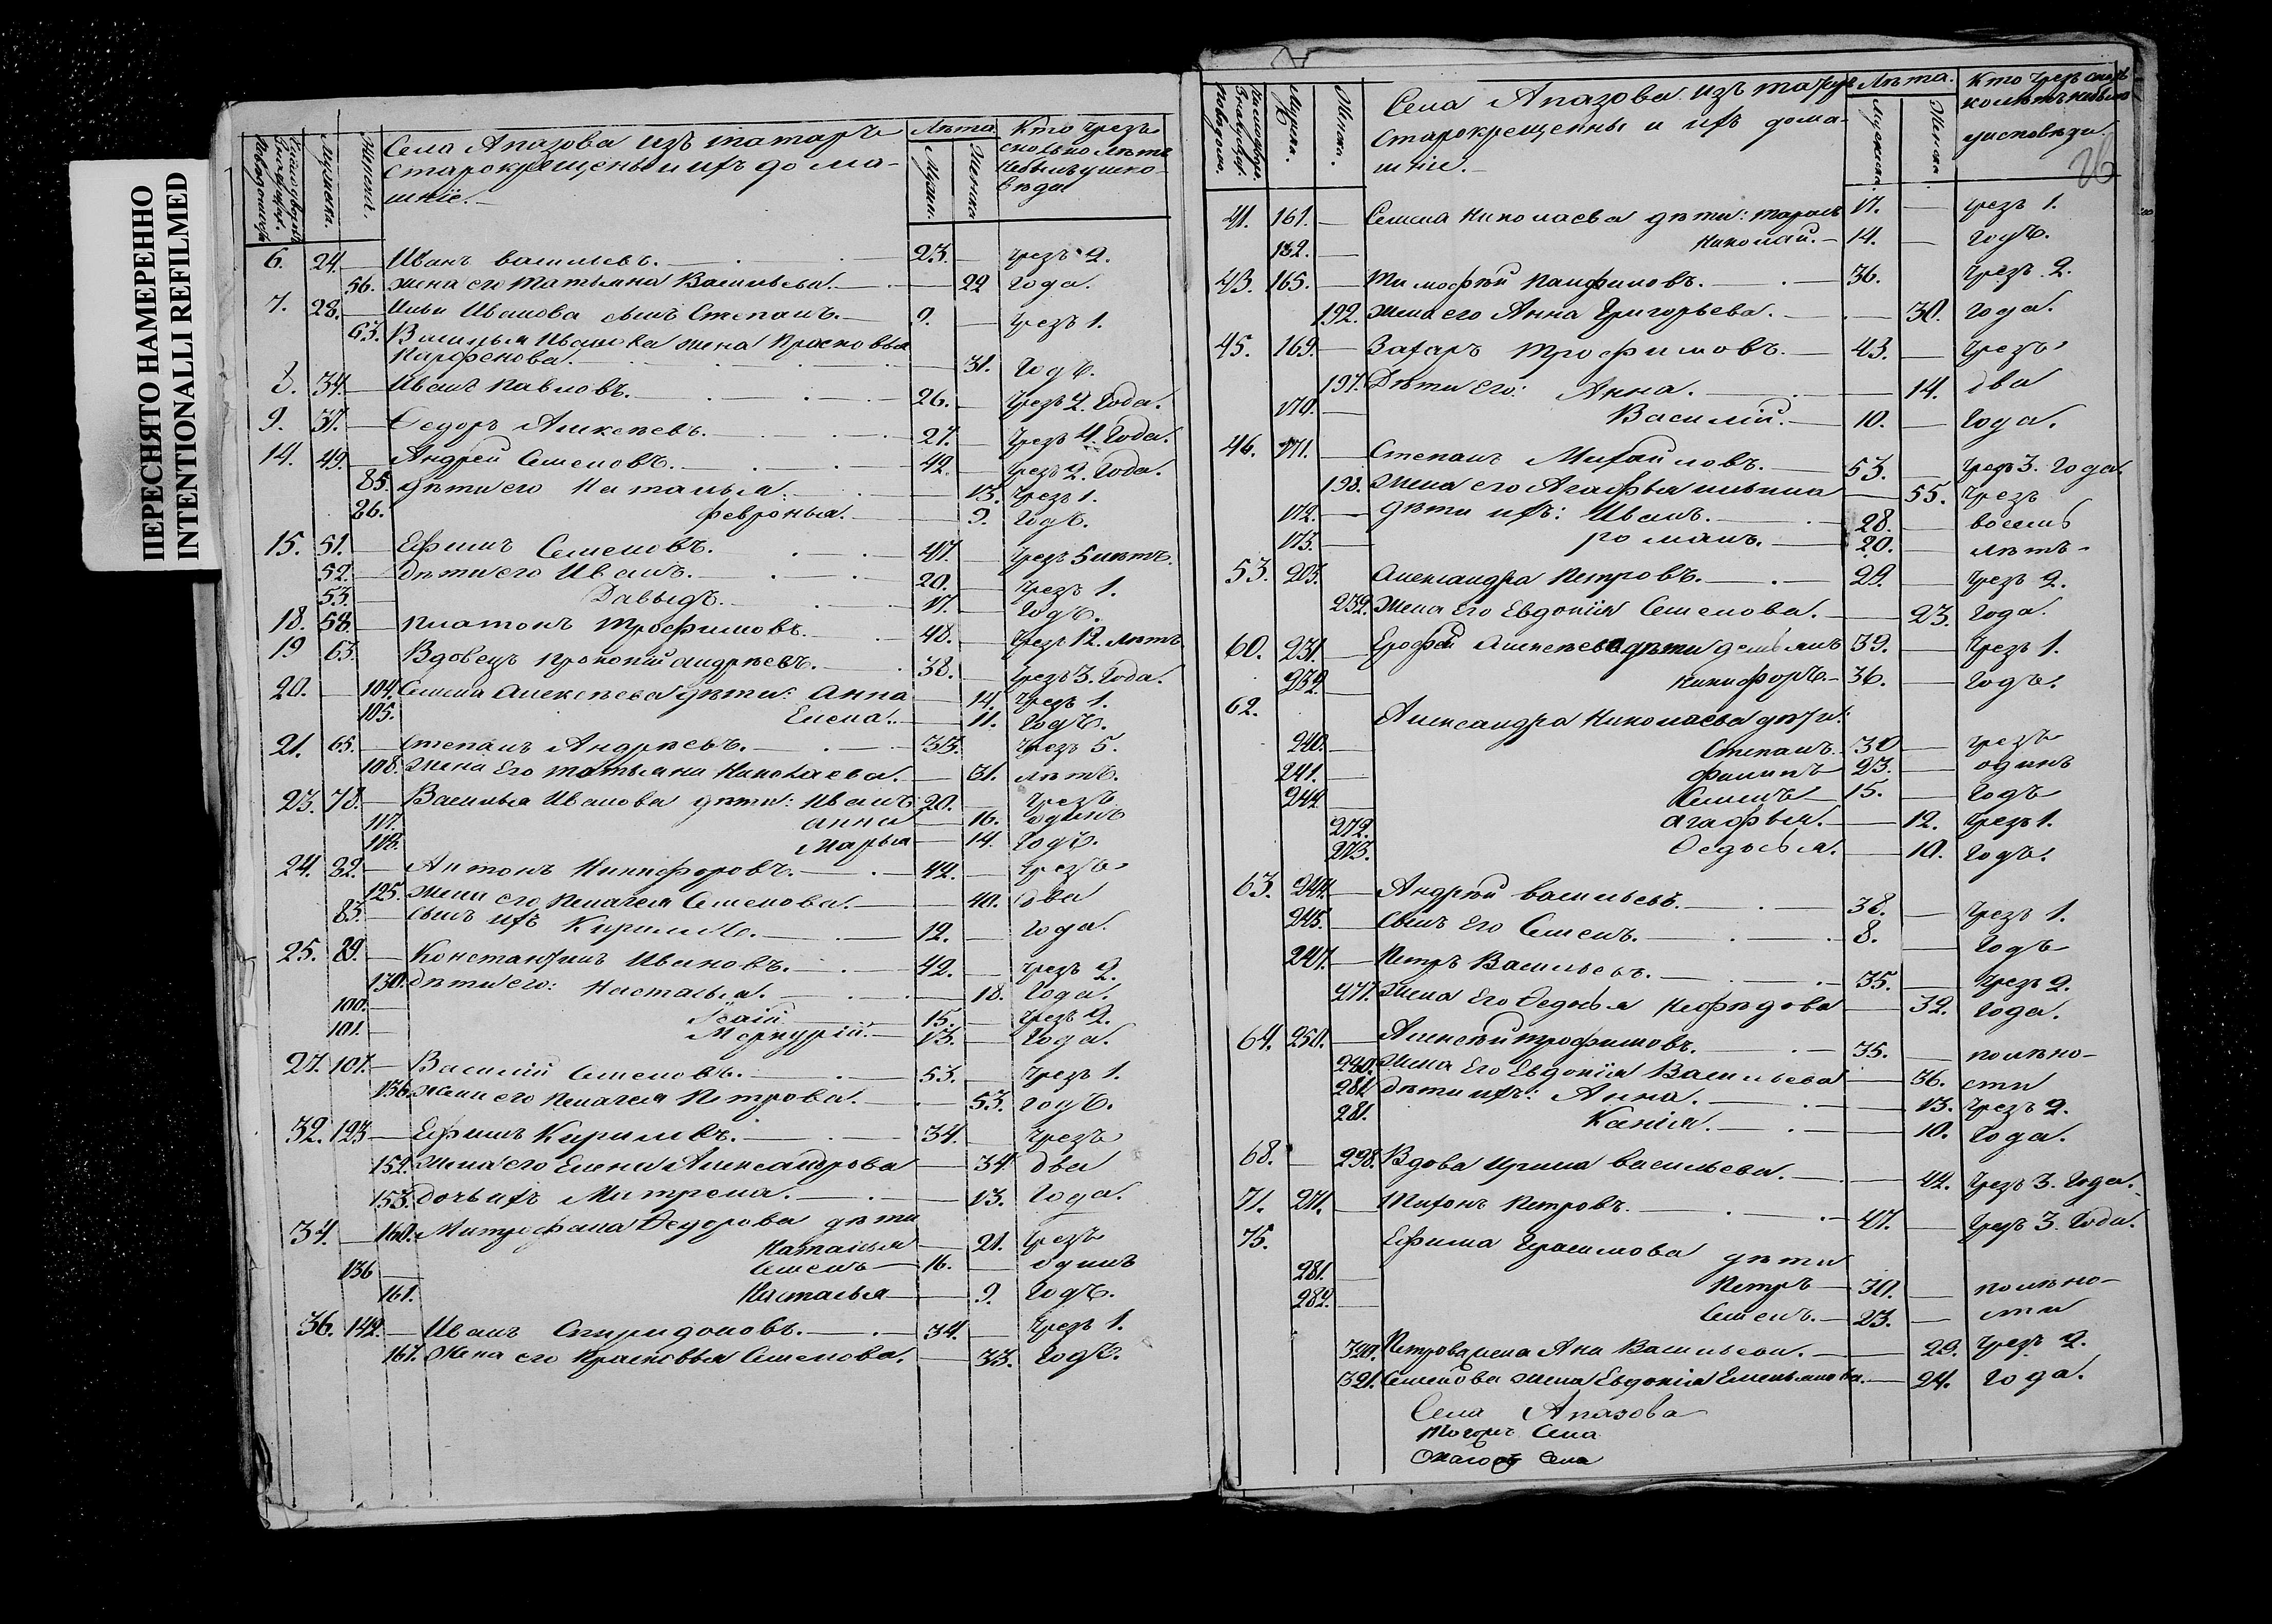 ПЕРЕСНЯТО НАМЕРЕННО
INTENTIONALLI REFILMED
Мужеска. Женска.
Села Апазова изъ татаръ
старокрещены и ихъ дома-
шніе.
Лѣта
Мужск. Женска
Кто чрезъ
сколько лѣтъ
небылъ у испо-
вѣди
6. 24. — Иванъ Васильевъ. — 23. — чрезъ 2.
56. Жена его Татьяна Васильева. — 22 года.
7. 28. — Ильи Иванова сынъ Степанъ. 9. — чрезъ 1.
63. Василья Иванова жена Прасковья
Парфенова. — 31. годъ.
8. 34. — Иванъ Павловъ. — 26. — чрезъ 2. года.
9. 37. — Ѳедоръ Алексѣевъ. — 27. — чрезъ 4. года.
14. 49. — Андрей Семеновъ. — 42. — чрезъ 2. года.
85. дѣти его Наталья. — 13. чрезъ 1.
86. Февронья. — 9. годъ.
15. 51. — Ефимъ Семеновъ. — 47. — чрезъ 5 лѣтъ.
52. — Дѣти его Иванъ. — 20. — чрезъ 1.
53. — Давыдъ. — 17. — годъ.
18. 58. — Платонъ Трофимовъ. — 48. — чрезъ 12. лѣтъ
19 63. Вдовецъ Прокопій Андрѣевъ. — 38. — чрезъ 3. года.
20. — 104. Семена Алексѣева дѣти: Анна — 14. чрезъ 1.
105. Елена. — 11. годъ.
21. 65. — Степанъ Андрѣевъ. — 35. — чрезъ 5.
108. Жена его Татьяна Николаева. — 31. лѣтъ.
23. 78. — Василья Иванова дѣти: Иванъ 20. — чрезъ
117. Анна — 16. одинъ
118. Марья — 14. годъ.
24. 82. — Антонъ Никифоровъ. — 42. — чрезъ
125. Жена его Пелагея Семенова. — 40. два
83. — сынъ ихъ Кирилъ. — 12. — года.
25. 89. — Константинъ Ивановъ. — 42. — чрезъ 2.
130. Дѣти его: Настасья. — 18. года.
100. — Исаій — 15. — чрезъ 2.
101. — Меркурій. — 13. — года.
27. 107. — Василій Семеновъ. — 53. — чрезъ 1.
136. Жена его Пелагея Петрова. — 53. годъ.
32. 123 — Ефимъ Кириловъ. — 34. — чрезъ
152. Жена его Елена Александрова — 34. два
153. Дочь ихъ Митрена. — 13. года.
34. — 160. Митрофана Ѳедорова дѣти
Наталья — 21. чрезъ
136 — Семенъ — 16. — одинъ
161. Настасья — 9. годъ.
36. 142. — Иванъ Спиридоновъ. — 34. — чрезъ 1.
167. Жена его Прасковья Семенова. — 33. годъ.
Мужеск. Женска.
Села Апазова изъ татаръ
старокрещены и ихъ дома-
шніе. —
Лѣта.
Женска
Кто чрезъ сколь
ко лѣтъ небылъ
у исповѣди.
26
41. 161. — Семена Николаева дѣти: Тарасъ 17. — чрезъ 1.
162. — Николай. — 14. — годъ.
43. 165. — Тимофѣй Панфиловъ. — 36. чрезъ 2.
192. Жена его Анна Григорьева. — 30. года.
45. 169. — Захаръ Трофимовъ. — 43. — чрезъ
197. Дѣти его: Анна. — 14. два
170. — Василій. — 10. — года.
46. 171. — Степанъ Михайловъ. — 53. — чрезъ 3. года.
198. Жена его Агафья Ильина — 55. чрезъ
172. — дѣти ихъ: Иванъ. — 28. — восемь
173. — Романъ. — 20. — лѣтъ.
53. 203. Александра Петровъ. — 29. — чрезъ 2.
239. Жена его Евдокія Семенова. — 23. года.
60. 231. — Ерофѣй Алексѣева дѣти Демьянъ 39. — чрезъ 1.
232. — Никифоръ. — 36. — годъ.
62. Александра Николаева дѣти:
240. — Степанъ. 30 — чрезъ
241. — Филипъ — 23. — одинъ
242. — Семенъ — 15. — годъ
272. Агафья. — 12. чрезъ 1.
273. Ѳедосья. — 10. годъ.
63. 244. — Андрей Васильевъ. — 38. — чрезъ 1.
245. — Сынъ его Семенъ. — 8. — годъ
247. — Петръ Васильевъ. — 35. — чрезъ 2.
277. Жена его Ѳедосья Нефедова — 32. года.
64. 250. — Алексѣй Трофимовъ. — 35. — по лѣно-
280. Жена его Евдокія Васильева — 36. сти
281. Дѣти ихъ: Анна. — 13. чрезъ 2.
281. Ксенія. — 10. года.
68. — 298. Вдова Ирина Васильева. — 42. чрезъ 3. года.
71. 271. — Тихонъ Петровъ. — 47. — чрезъ 3. года.
75. Ефима Герасимова дѣти
281. — Петръ — 30. — по лѣно-
282. — Семенъ. — 23. — сти
320. Петрова жена Анна Васильева. — 29. чрезъ 2.
321. Семенова жена Евдокія Емельянова. — 24. года.
Села Апазова
Тогожъ села
Онагожъ села